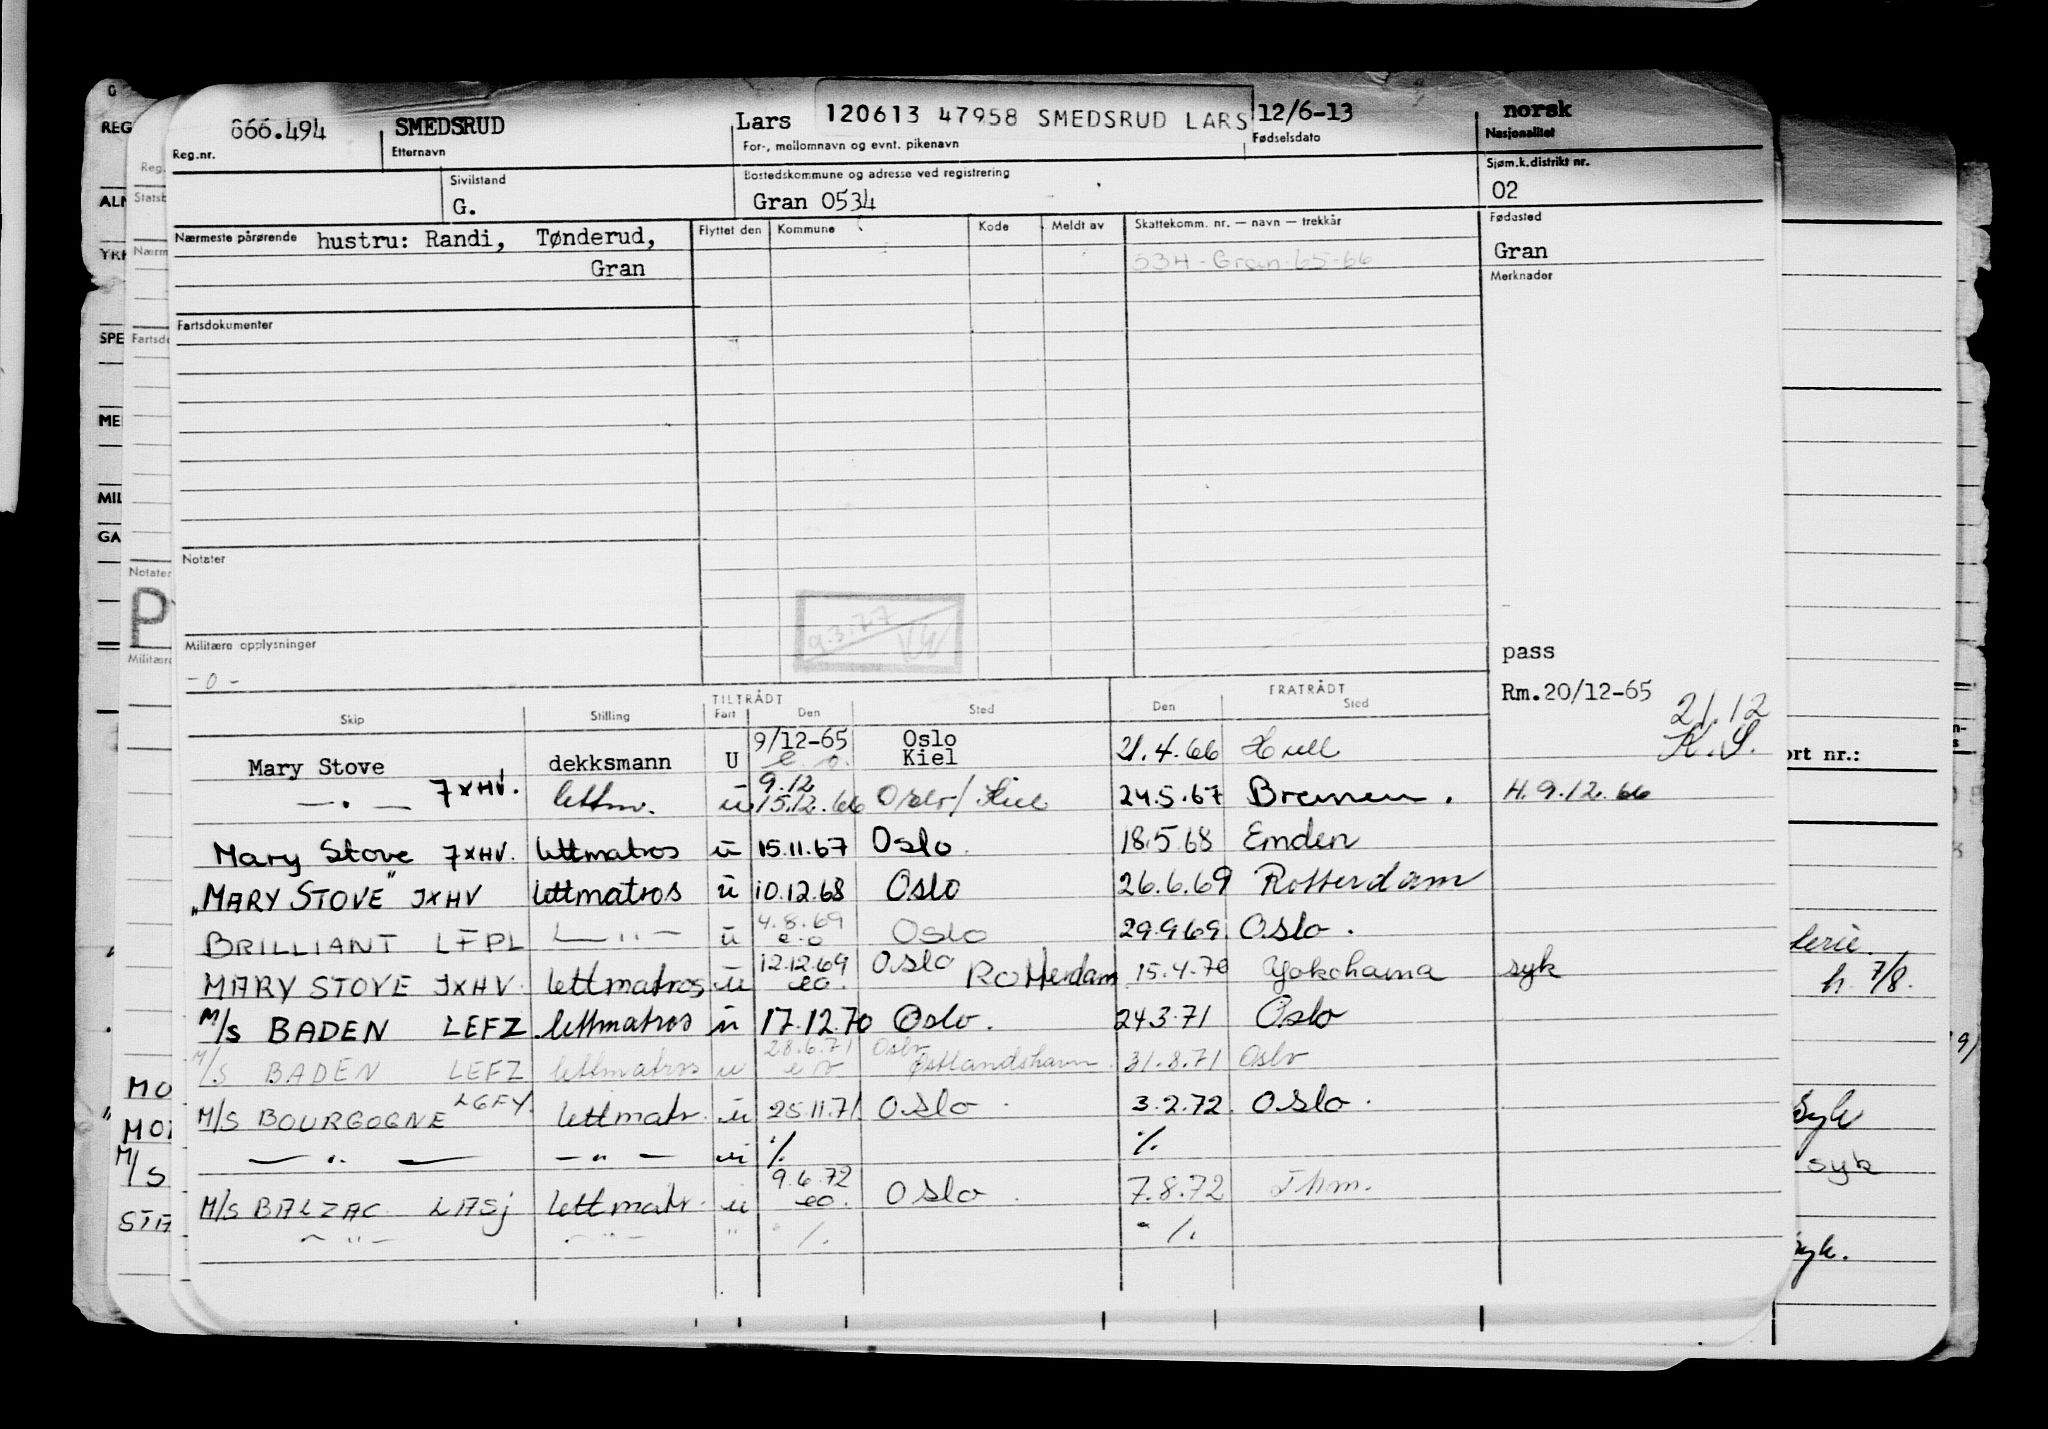 666.494 SMEDSRUD Lars 120613 47958 SMEDSRUD LARS 12/6-13 norsk
Reg.nr. Etternavn For-, mellomnavn og evnt. pikenavn Fødselsdato Nasjonalitet
Sivilstand Bostedskommune og adresse ved registrering Sjøm.k.distrikt nr.
G. Gran 0534 02
Nærmeste pårørende hustru: Randi, Tønderud, Flyttet den Kommune Kode Meldt av Skattekomm. nr. — navn — trekkår Fødested
Gran 534-Gran-65-66 Gran
Merknader
Fartsdokumenter
Notater
9.3.77
Militære opplysninger pass
-o-
Rm.20/12-65
TILTRÅDT FRATRÅDT
Skip Stilling Fart Den Sted Den Sted
21.12
K.S.
Mary Stove dekksmann U 9/12-65 e.o. Oslo Kiel 21.4.66 Hull
—"— JXHV. lettm. u 9.12 15.12.66 Oslo/Kiel 24.5.67 Bremen. H.9.12.66
Mary Stove JXHV. lettmatros u 15.11.67 Oslo. 18.5.68 Emden
"MARY STOVE" JXHV lettmatros u 10.12.68 Oslo 26.6.69 Rotterdam
BRILLIANT LFPL —"— u 4.8.69 e.o Oslo 29.9.69. Oslo.
MARY STOVE JXHV. lettmatros u 12.12.69 eo. Oslo Rotterdam 15.4.70 Yokohama syk
M/S BADEN LEFZ lettmatros u 17.12.70 Oslo. 24.3.71 Oslo
M/S BADEN LEFZ lettmatros u 28.6.71 e o Oslo Østlandshavn. 31.8.71 Oslo
M/S BOURGOGNE LGFY. lettmatr. u 25.11.71. Oslo. 3.2.72. Oslo.
—"— —"— u ·/. ·/.
M/S BALZAC LASJ lettmatr. u 9.6.72 eo. Oslo. 7.8.72 Thm.
—"— —"— " " /. " /.
REG
Reg.
ALM
Statsb
YRK
SPE
Fartsdo
MIL
GA
Notater
P
Militære
MO
M/S
ort nr.:
h. 7/8.
Syk
syk
syk.